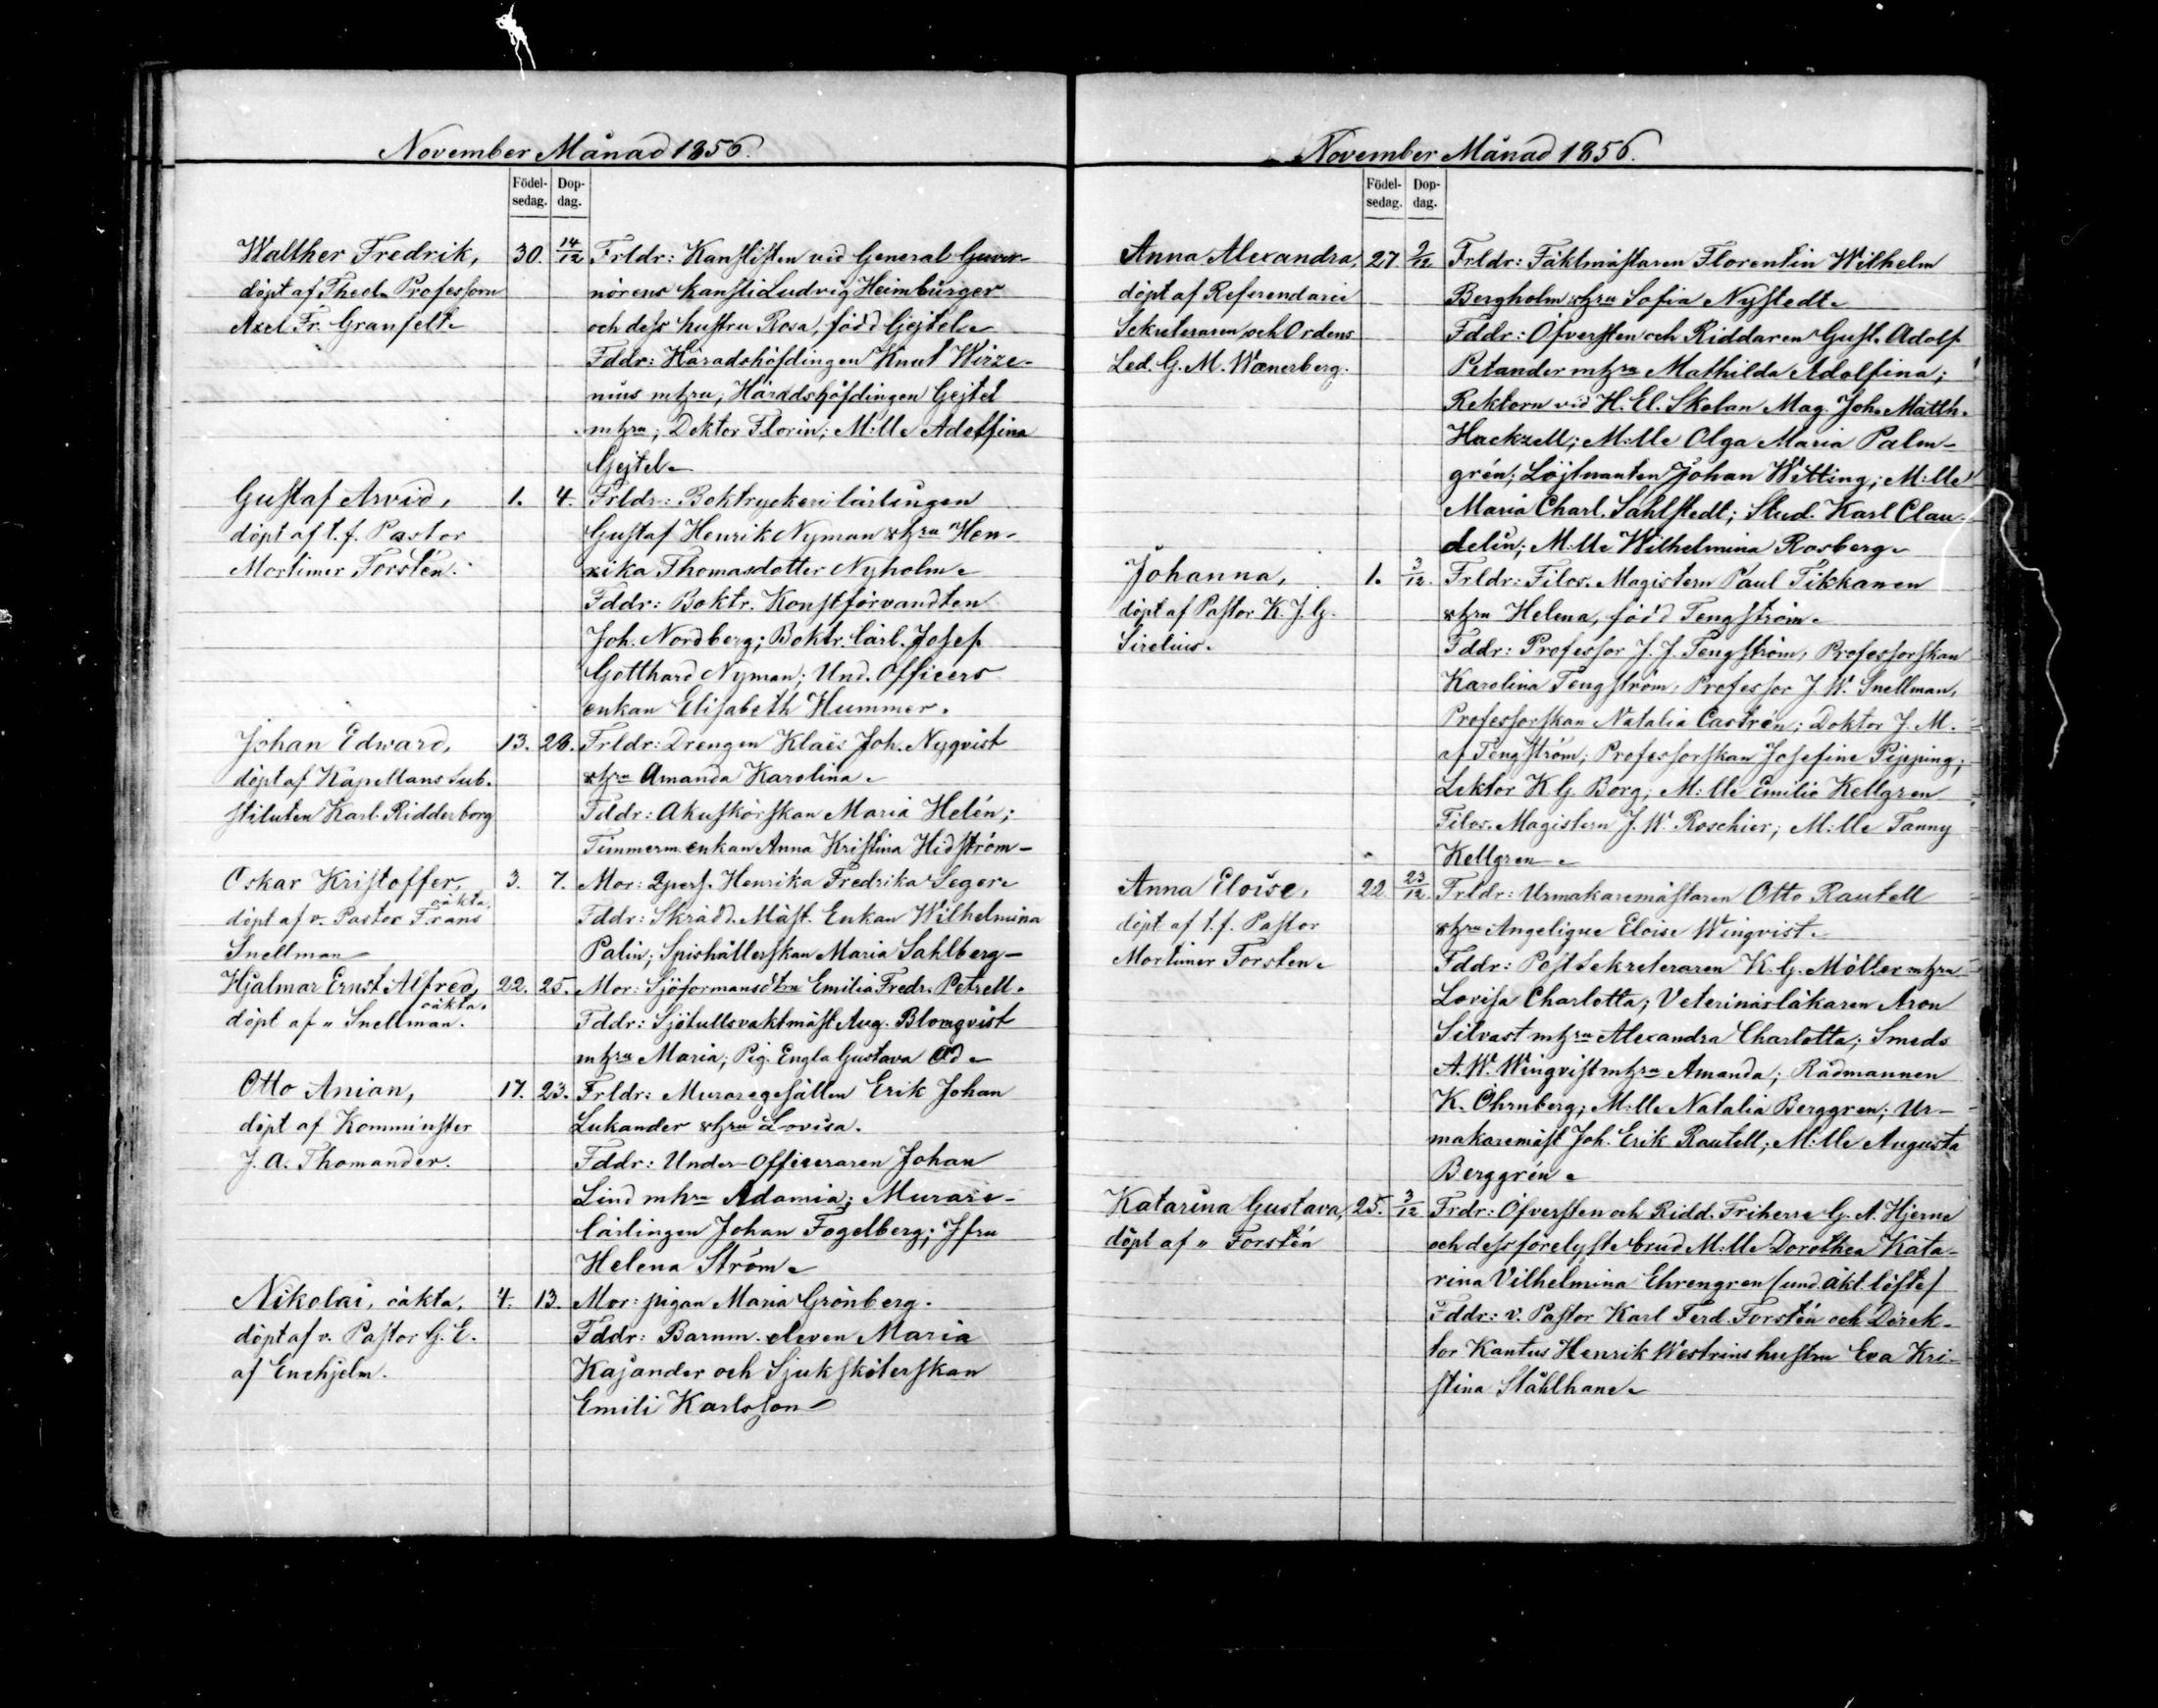 November Månad 1856.
Födel-
sedag.
Dop-
dag.
Walther Fredrik,
döpt af Theol. Professorn
Axel Fr. Granfelt.
30.
14/12
Frldr: Kanslisten vid General Guver-
nörens kansli Ludvig Heimbürger
och dess hustru Rosa, född Gejtel.
Fddr: Häradshöfdingen Knut Wirze-
nius mhru; Häradshöfdingen Gejtel
mhru; Doktor Florin; M:lle Adelfina
Gejtel.
Gustaf Arvid,
döpt af t.f. Pastor
Mortimer Forstén.
1.
4.
Frldr: Boktryckeri lärlingen
Gustaf Henrik Nyman o hru Hen-
rika Thomasdotter Nyholm.
Fddr: Boktr. Konstförvandten
Joh. Nordberg; Boktr. lärl. Josef
Gotthard Nyman; Und. Officers
enkan Elisabeth Hummer.
Johan Edward,
döpt af Kapellans Sub-
stituten Karl Ridderborg
13.
28.
Frldr: Drengen Klaës Joh. Nyqvist
o hru Amanda Karolina.
Fddr: Akuskörskan Maria Helén;
Timmerm. enkan Anna Kristina Hidström
Oskar Kristoffer,
oäkta,
döpt af v. Pastor Frans
Snellman
3.
7.
Mor: Qpers. Henrika Fredrika Seger.
Fddr: Skrädd. Mäst. Enkan Wilhelmina
Palin; Spishållerskan Maria Sahlberg
Hjalmar Ernst Alfred,
oäkta.
döpt af " Snellman.
22.
25.
Mor: Sjöformansdtrn Emilia Fredr. Petrell.
Fddr: Sjötullsvaktmäst Aug. Blomqvist
mhru Maria; Pig. Engla Gustava Öd.
Otto Anian,
döpt af Komminister
J. A. Thomander.
17.
23.
Frldr: Muraregesällen Erik Johan
Lukander o hru Lovisa.
Fddr: Under-Officeraren Johan
Lind mhru Adamia; Murare-
lärlingen Johan Fogelberg; Jfru
Helena Ström.
Nikolai, oäkta,
döpt af v. Pastor G. E.
af Enehjelm.
4.
13.
Mor: pigan Maria Grönberg.
Fddr: Barnm. eleven Maria
Kajander och Sjukskôterskan
Emili Karlsson
November Månad 1856.
Födel-
sedag.
Dop-
dag.
Anna Alexandra,
döpt af Referendarie
Sekreteraren och Ordens
Led. G. M. Wænerberg.
27.
9/12
Frldr: Fäktmästaren Florentin Wilhelm
Bergholm o hru Sofia Nystedt.
Fddr: Öfversten och Riddaren Gust. Adolf
Petander mhru Mathilda Adolfina;
Rektorn vid H. El. Skolan Mag. Joh. Matth.
Hackzell; M:lle Olga Maria Palm-
grén; Löjtnanten Johan Witting; M:lle
Maria Charl. Sahlstedt; Stud. Karl Clau-
delin; M:lle Wilhelmina Rosberg.
Johanna,
döpt af Pastor K. J. G.
Sirelius.
1.
3/12.
Frldr: Filos. Magistern Paul Tikkanen
o hru Helena, född Tengström.
Fddr: Professor J. J. Tengström, Professorskan
Karolina Tengström, Professor J. W. Snellman,
Professorskan Natalia Castrén; Doktor J. M.
af Tengström; Professorskan Josefine Pipping;
Lektor K G. Borg; M:lle Emilie Kellgren
Filos. Magistern J. W. Roschier; M:lle Fanny
Kellgren.
Anna Eloise,
döpt af t.f. Pastor
Mortimer Forsten.
22
23/12
Frldr: Urmakaremästaren Otto Rautell
o hru Angelique Eloise Winqvist.
Fddr: Post Sekreteraren K. G. Möller mhru
Lovisa Charlotta; Veterinärläkaren Aron
Silvast mhru Alexandra Charlotta; Smeds
A. W. Winqvist mhru Amanda; Rådmannen
K. Öhrnberg; M:lle Natalia Berggren; Ur-
makaremäst Joh. Erik Rautell; M:lle Augusta
Berggrén.
Katarina Gustava,
döpt af " Forstén
25.
3/12
Frdr: Öfversten och Ridd. Friherre G. A. Hjerne
och dess förelyste brud M:lle Dorothea Kata-
rina Vilhelmina Ehrengren (und. äkt. löfte)
Fddr: v. Pastor Karl Ferd. Forstén och Direk-
tor Kantus Henrik Westrins hustru Eva Kri-
stina Stålhane.